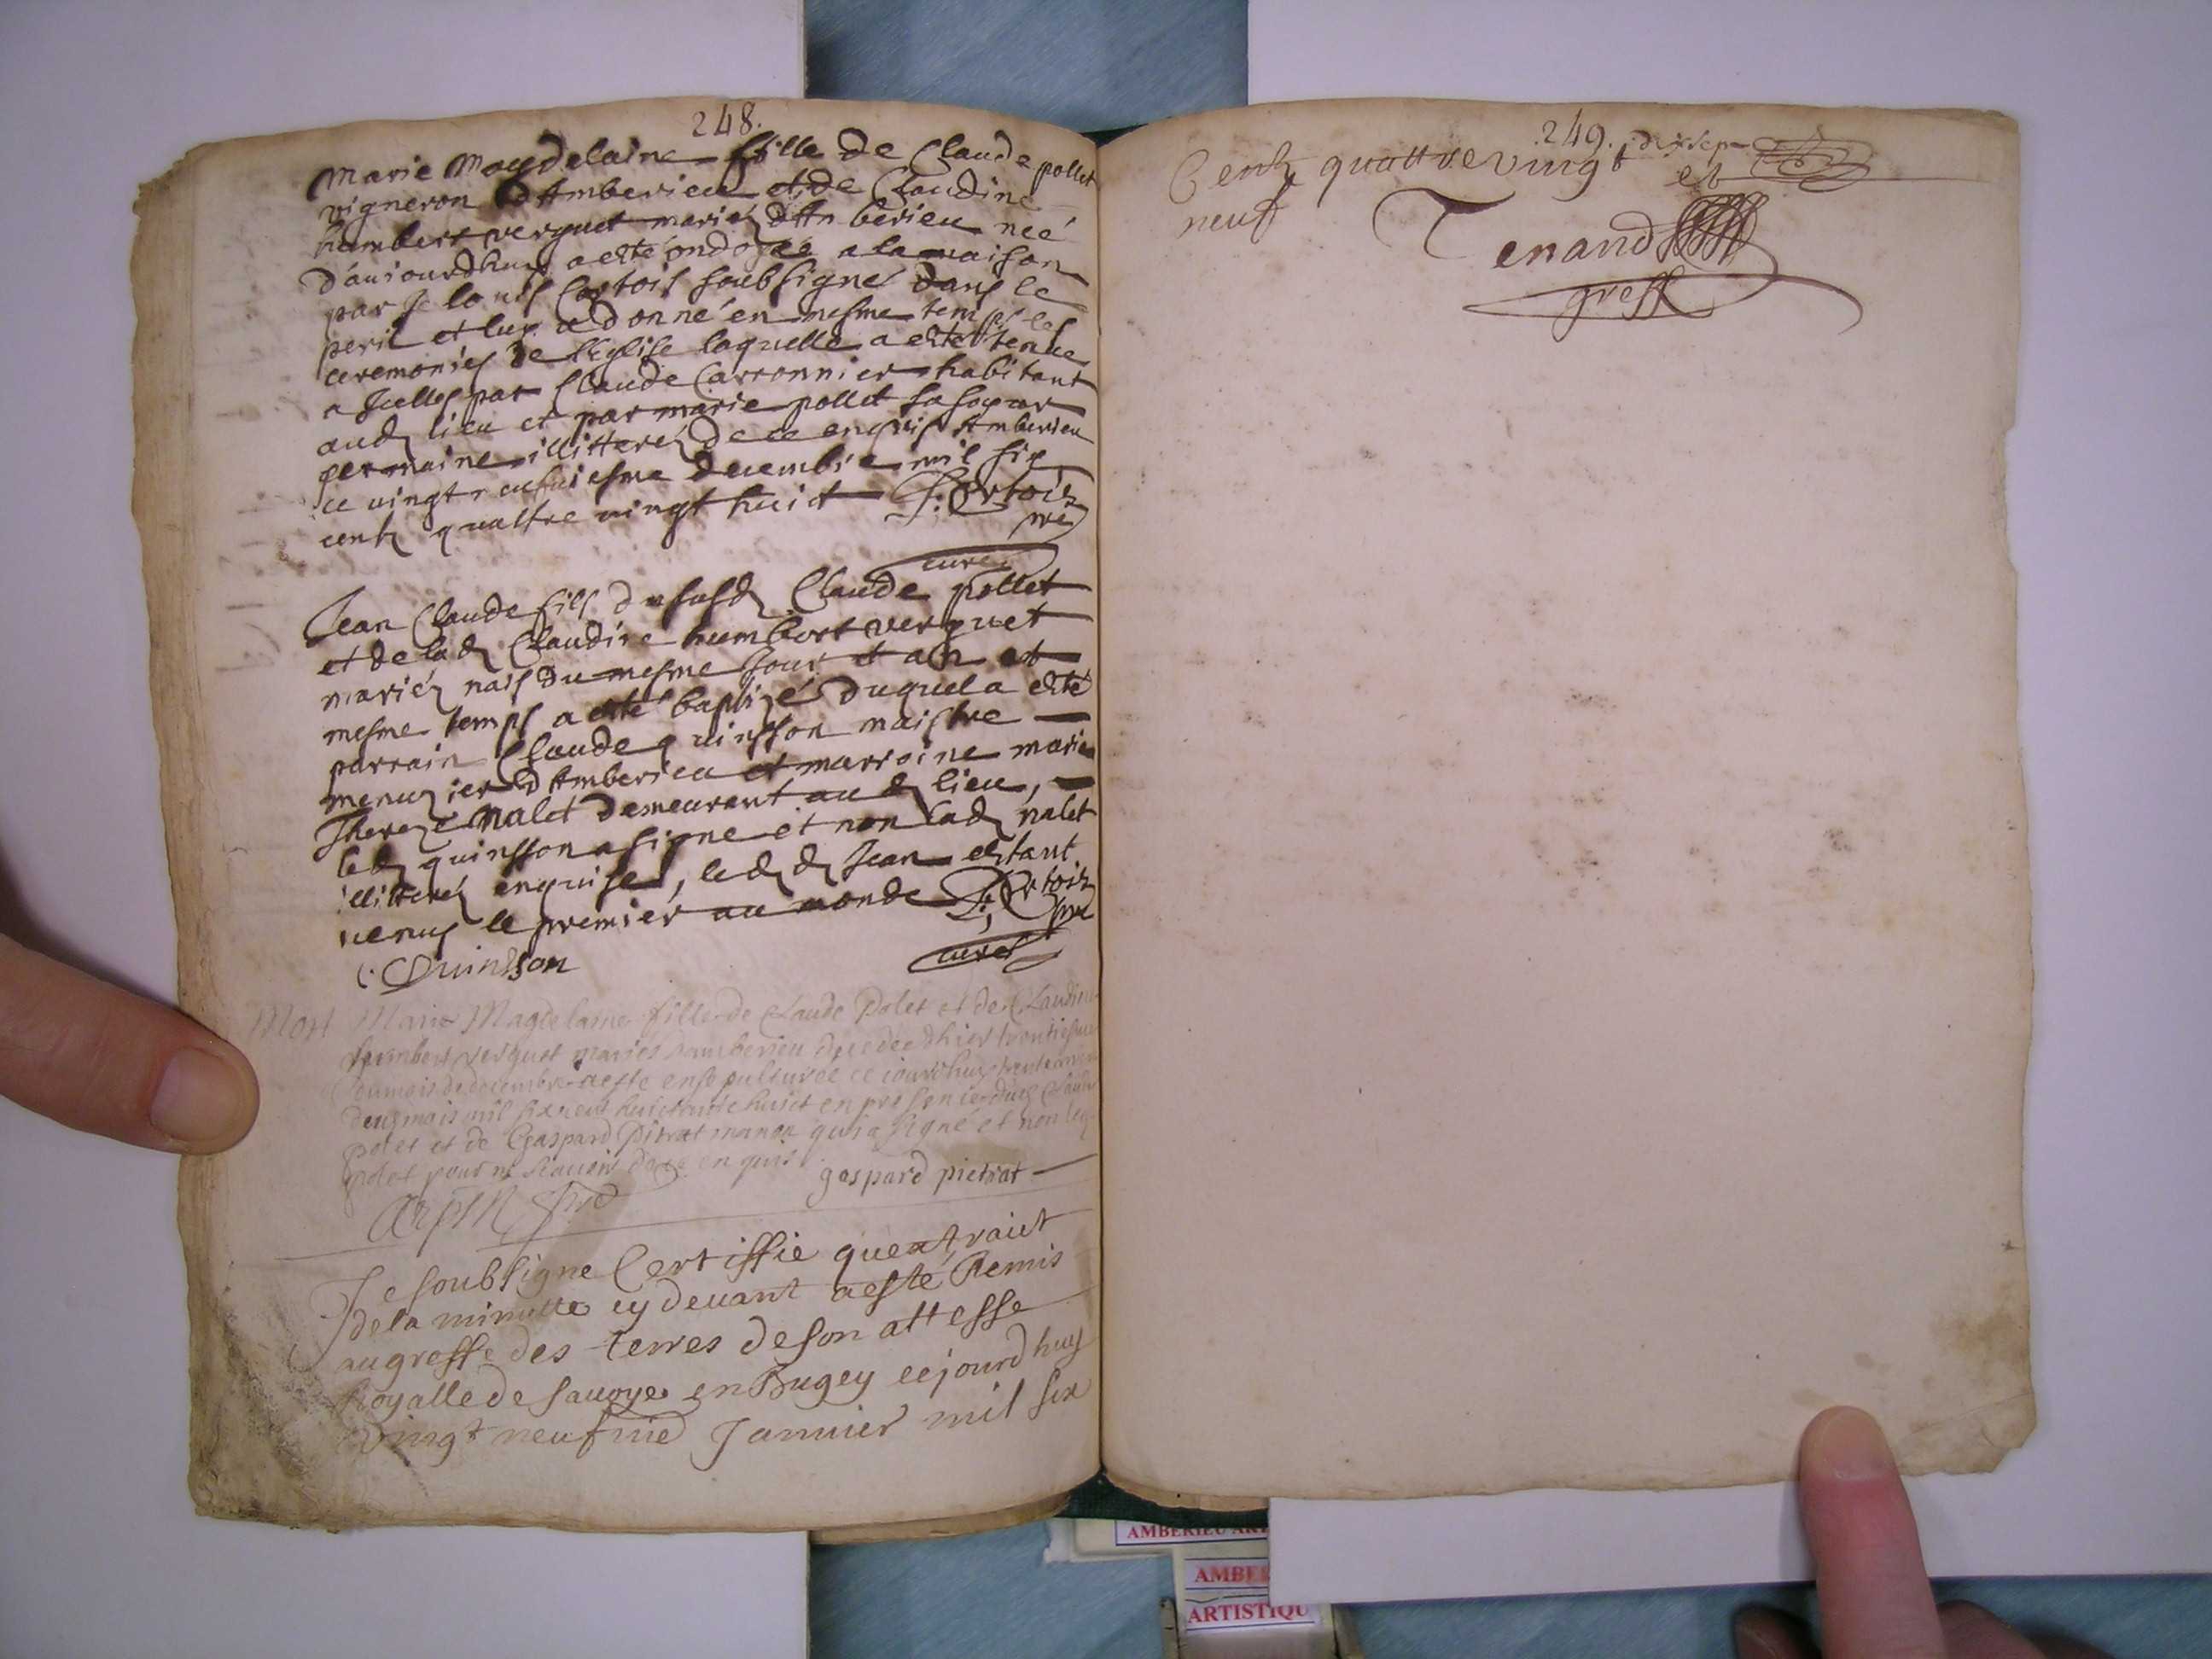 248.
Marie Magdelaine fille de Claude pollet
vigneron d'Amberieu et de Claudine
humbert verguet mariéz d'Amberieu neé
d'aujourdhuy a esté ondoyée a la maison
par Je louis soubsigné dans le
peril et luy a donné en mesme temps les
ceremonies de l'Eglise laquelle a esté tenue
a Jcelles par Claude Carronnier habitant
aud lieu et par marie pollet sa soeur
germaine illitteréz de ce enquis Amberieu
ce vingtneufuiesme decembre mil six
centz quattre vingt huict
pre
curé
Jean Claude fils du susd Claude pollet
et de lad Claudine humbert verguet
mariéz nais du mesme Jour et an et
mesme temps a esté baptizé duquel a esté
parrain Claude quinsson maistre
menuzier d'Amberieu et marraine marie
Thereze Nalet demeurant aud lieu,
led quinsson a signe et non lad nalet
illitteréz enquise, led d Jean estant
venus le premier au monde
pre
curé
C: Quinsson
Mort Marie Magdelaine fille de Claude Polet et de Claudine
humbert verguet maries damberieu decedee d'hier trentiesme
du mois de decembre a este ensepulturée ce iourdhuy trente un
dud mois mil six cent huictante huict en presence dud Claude
polet et de Gaspard Pitrat manan qui a signé et non led
polet pour ne scauoir de ce enquis
gaspard pietrat
pre
Je soubsigne Certiffie que extraict
de la minutte cy deuant a esté Remis
au greffe des terres de son attesse
Royalle de sauoye en Bugey cejourdhuy
vingt neufme Januier mil six
249.
Centz quattre vingt dixsept
et
neuf
Tenand
greff